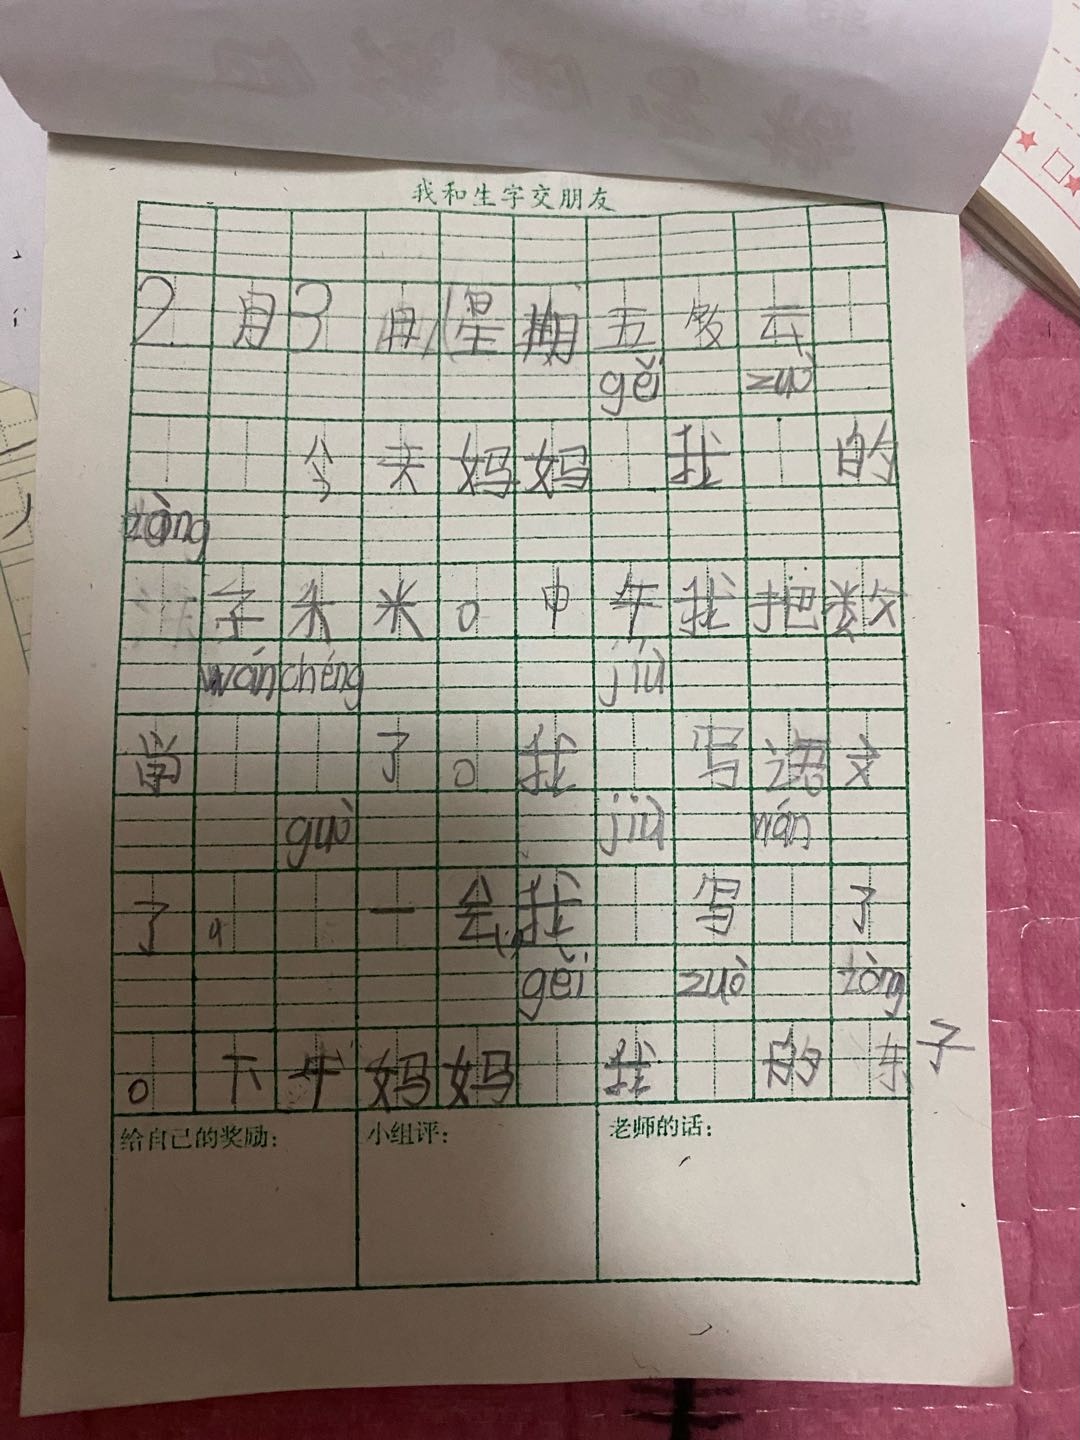 我和生字交朋友
2月3日星期五多云
gěi zuò
今天妈妈 我 的
tāng
子米米。中午我把数
wánchéng jiù
学 了。我 写语文
guò jiù wán
了。 一会我 写 了
gěi zuò tāng
。下午妈妈 我 的 子
给自己的奖励: 小组评: 老师的话: